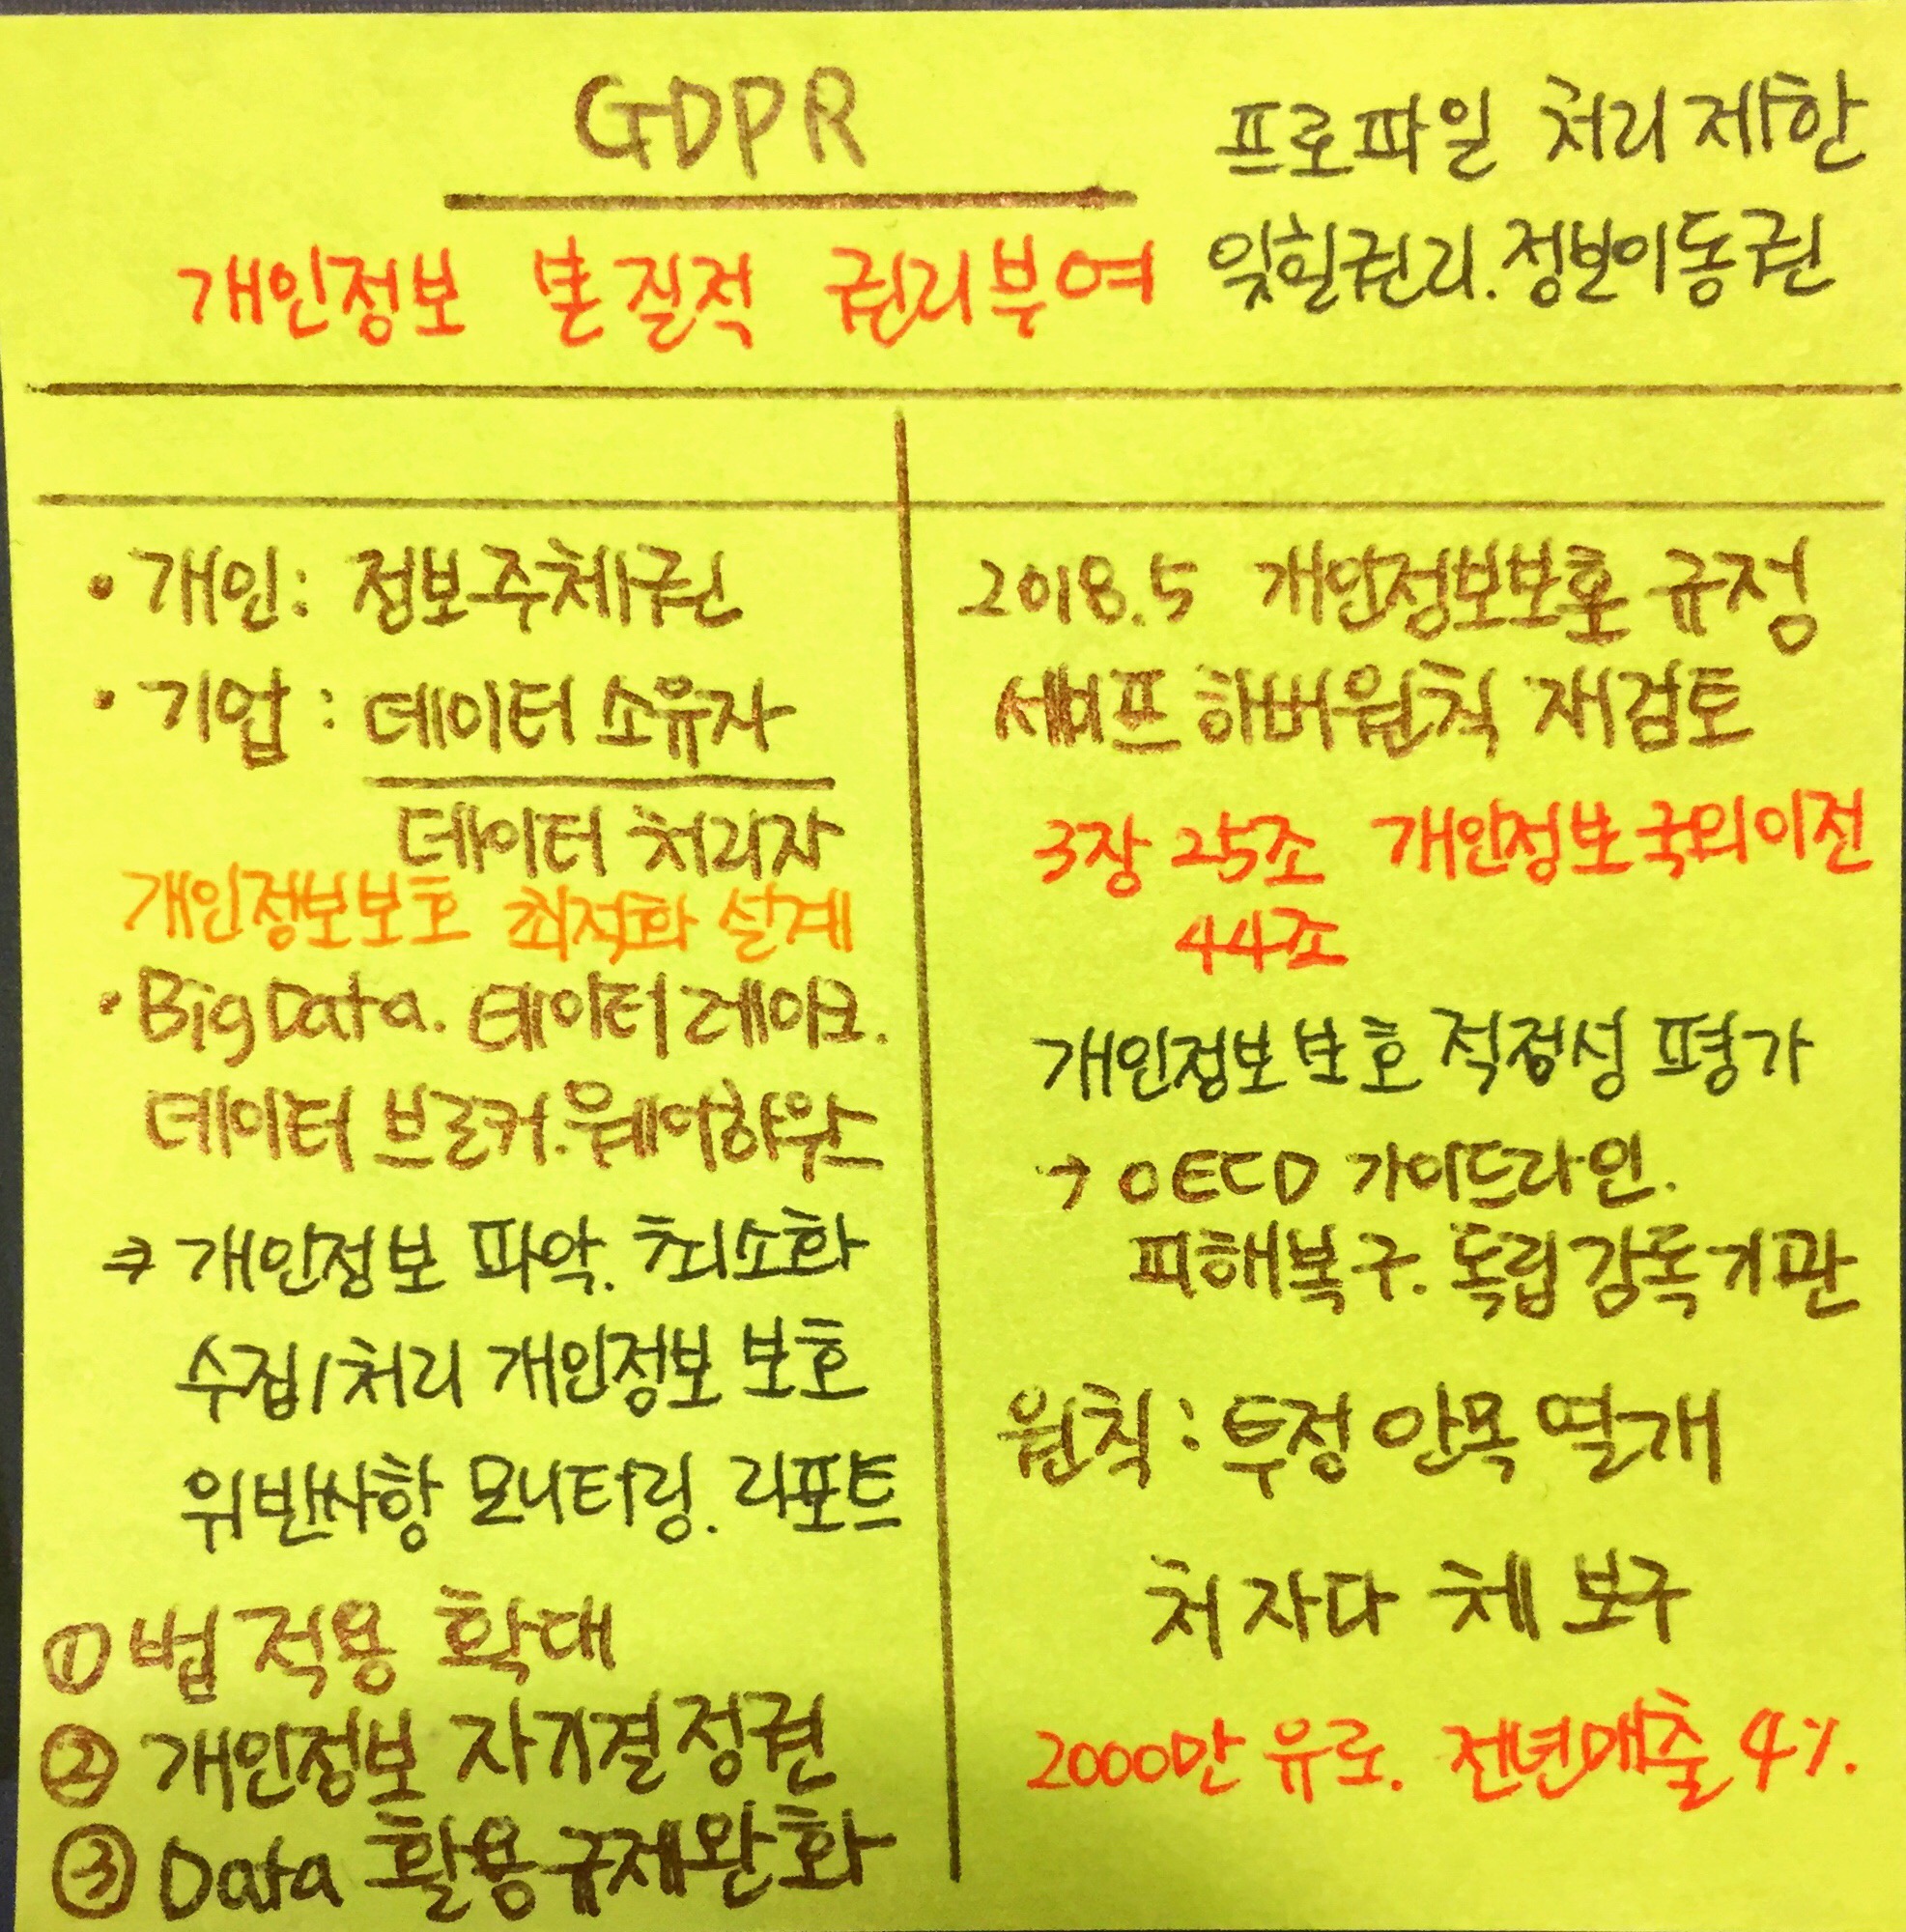 GDPR
프로파일 처리 제한
개인정보 본질적 권리부여
잊힐권리. 정보이동권
• 개인: 정보주체권
• 기업 : 데이터 소유자
데이터 처리자
개인정보보호 최적화 설계
• Big Data. 데이터 레이크.
데이터 브로커. 웨어하우스
→ 개인정보 파악. 최소화
수집/처리 개인정보 보호
위반사항 모니터링. 리포트
① 법 적용 확대
② 개인정보 자기결정권
③ Data 활용 규제완화
2018.5 개인정보보호 규정
세이프 하버원칙 재검토
3장 25조 개인정보 국외이전
44조
개인정보 보호 적정성 평가
→ OECD 가이드라인.
피해복구. 독립감독기관
원칙 : 투정 안목 열개
처 자다 체 보구
2000만 유로. 전년매출 4%.